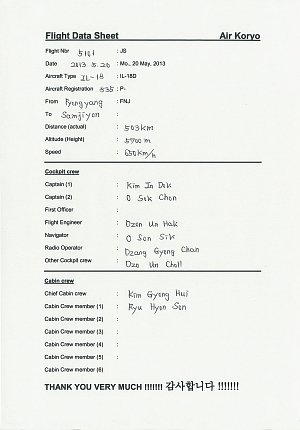 Flight Data Sheet Air Koryo
Flight Nbr 5101 : JS
Date 2013.5.20 : Mo., 20 May, 2013
Aircraft Type IL-18 : IL-18D
Aircraft Registration 835 : P-
From Pyongyang : FNJ
To Samjiyon :
Distance (actual) : 503km
Altitude (Height) : 5700m
Speed : 650km/h
Cockpit crew
Captain (1) : Kim In Dok
Captain (2) : O Sok Chon
First Officer :
Flight Engineer : Dzon Un Hak
Navigator : O Son Sik
Radio Operator : Dzang Gyong Chan
Other Cockpit crew : Dzo Un Choll
Cabin crew
Chief Cabin crew : Kim Gyong Hui
Cabin Crew member (1) : Ryu Hyon Son
Cabin Crew member (2) :
Cabin Crew member (3) :
Cabin Crew member (4) :
Cabin Crew member (5) :
Cabin Crew member (6) :
THANK YOU VERY MUCH !!!!!!! 감사합니다 !!!!!!!